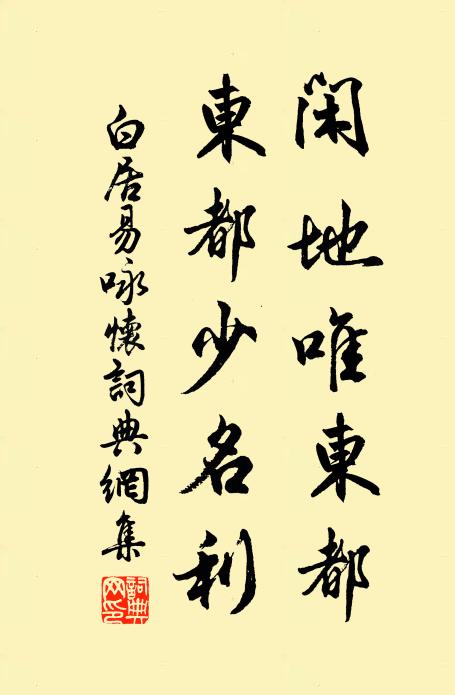 閑地唯東都
東都少名利
白居易咏懷詞典網集
詞典網印